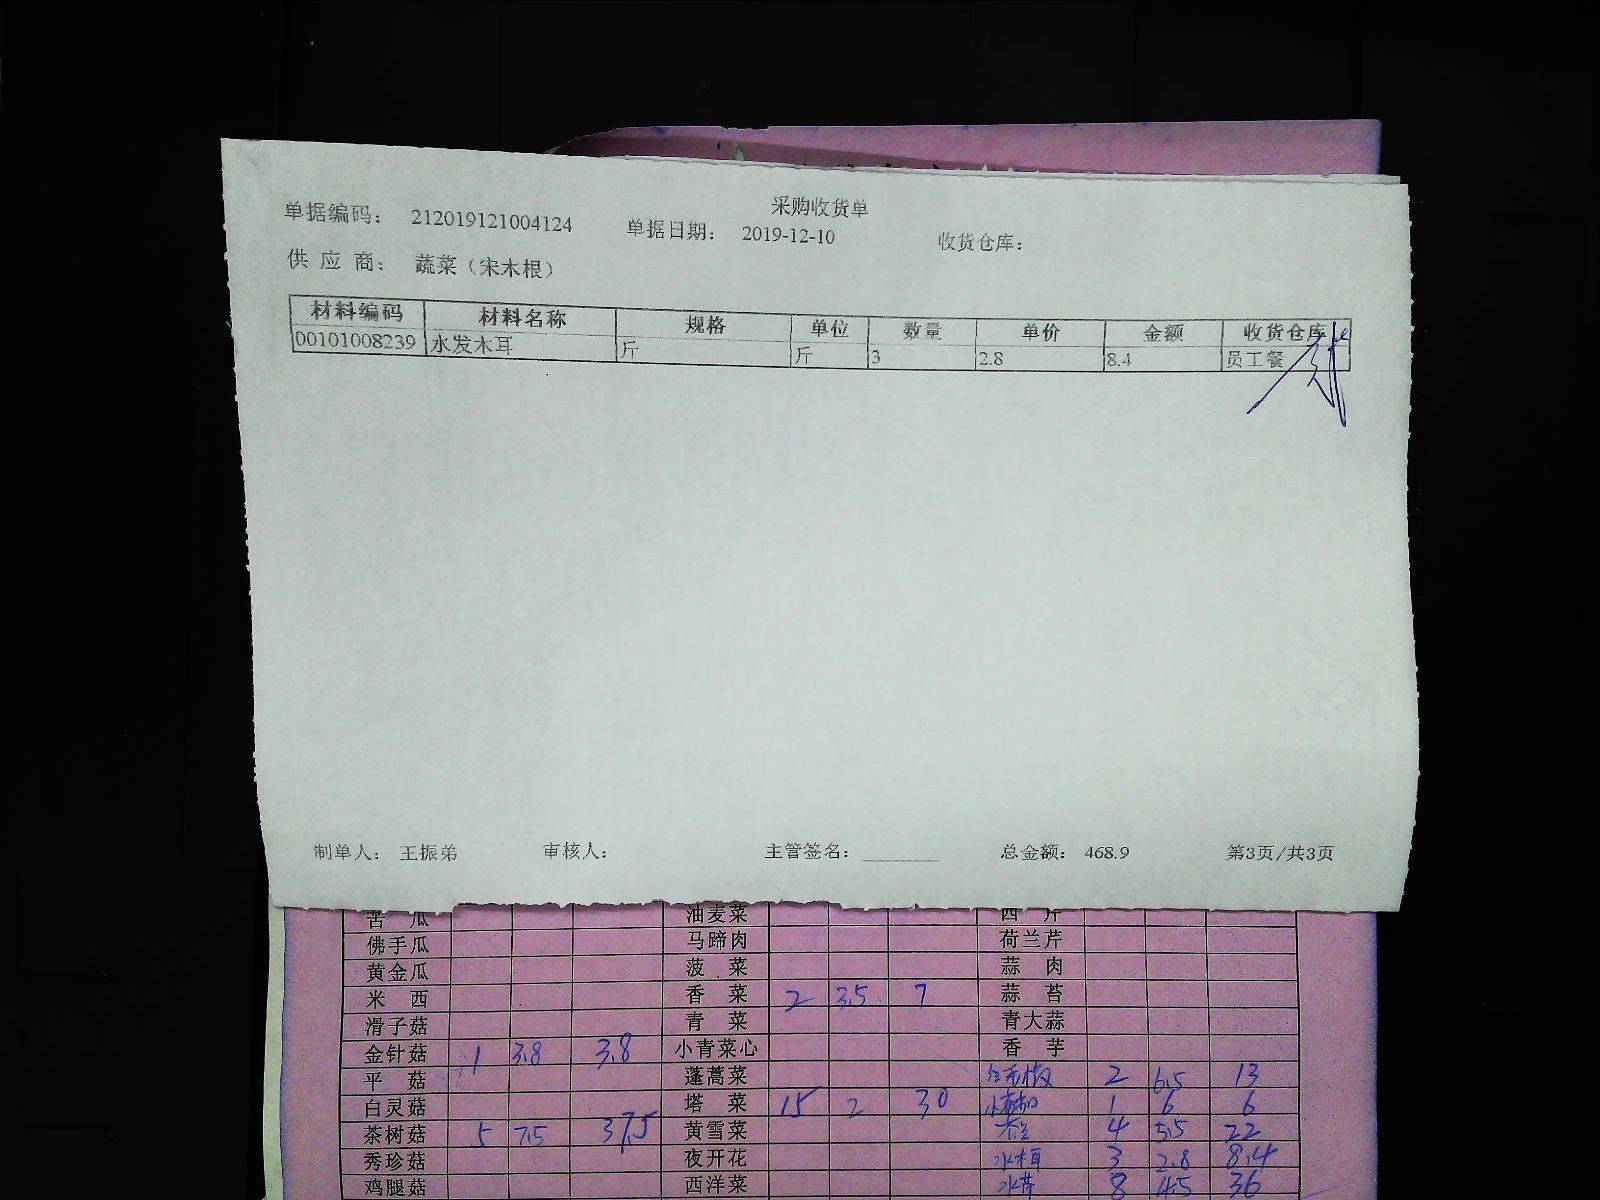 采购收货单
单据编码： 212019121004124 单据日期： 2019-12-10 收货仓库：
供 应 商： 蔬菜（宋木根）
材料编码 材料名称 规格 单位 数量 单价 金额 收货仓库
00101008239 水发木耳 斤 斤 3 2.8 8.4 员工餐
制单人： 王振弟 审核人： 主管签名： 总金额： 468.9 第3页/共3页
苦 瓜 油麦菜 西 芹
佛手瓜 马蹄肉 荷兰芹
黄金瓜 菠 菜 蒜 肉
米 西 香 菜 2 3.5 7 蒜 苔
滑子菇 青 菜 青大蒜
金针菇 1 3.8 3.8 小青菜心 香 芋
平 菇 蓬蒿菜 2 6.5 13
白灵菇 塔 菜 15 2 30 1 6 6
茶树菇 5 7.5 37.5 黄雪菜 4 5.5 22
秀珍菇 夜开花 3 2.8 8.4
鸡腿菇 西洋菜 水芹 8 4.5 36